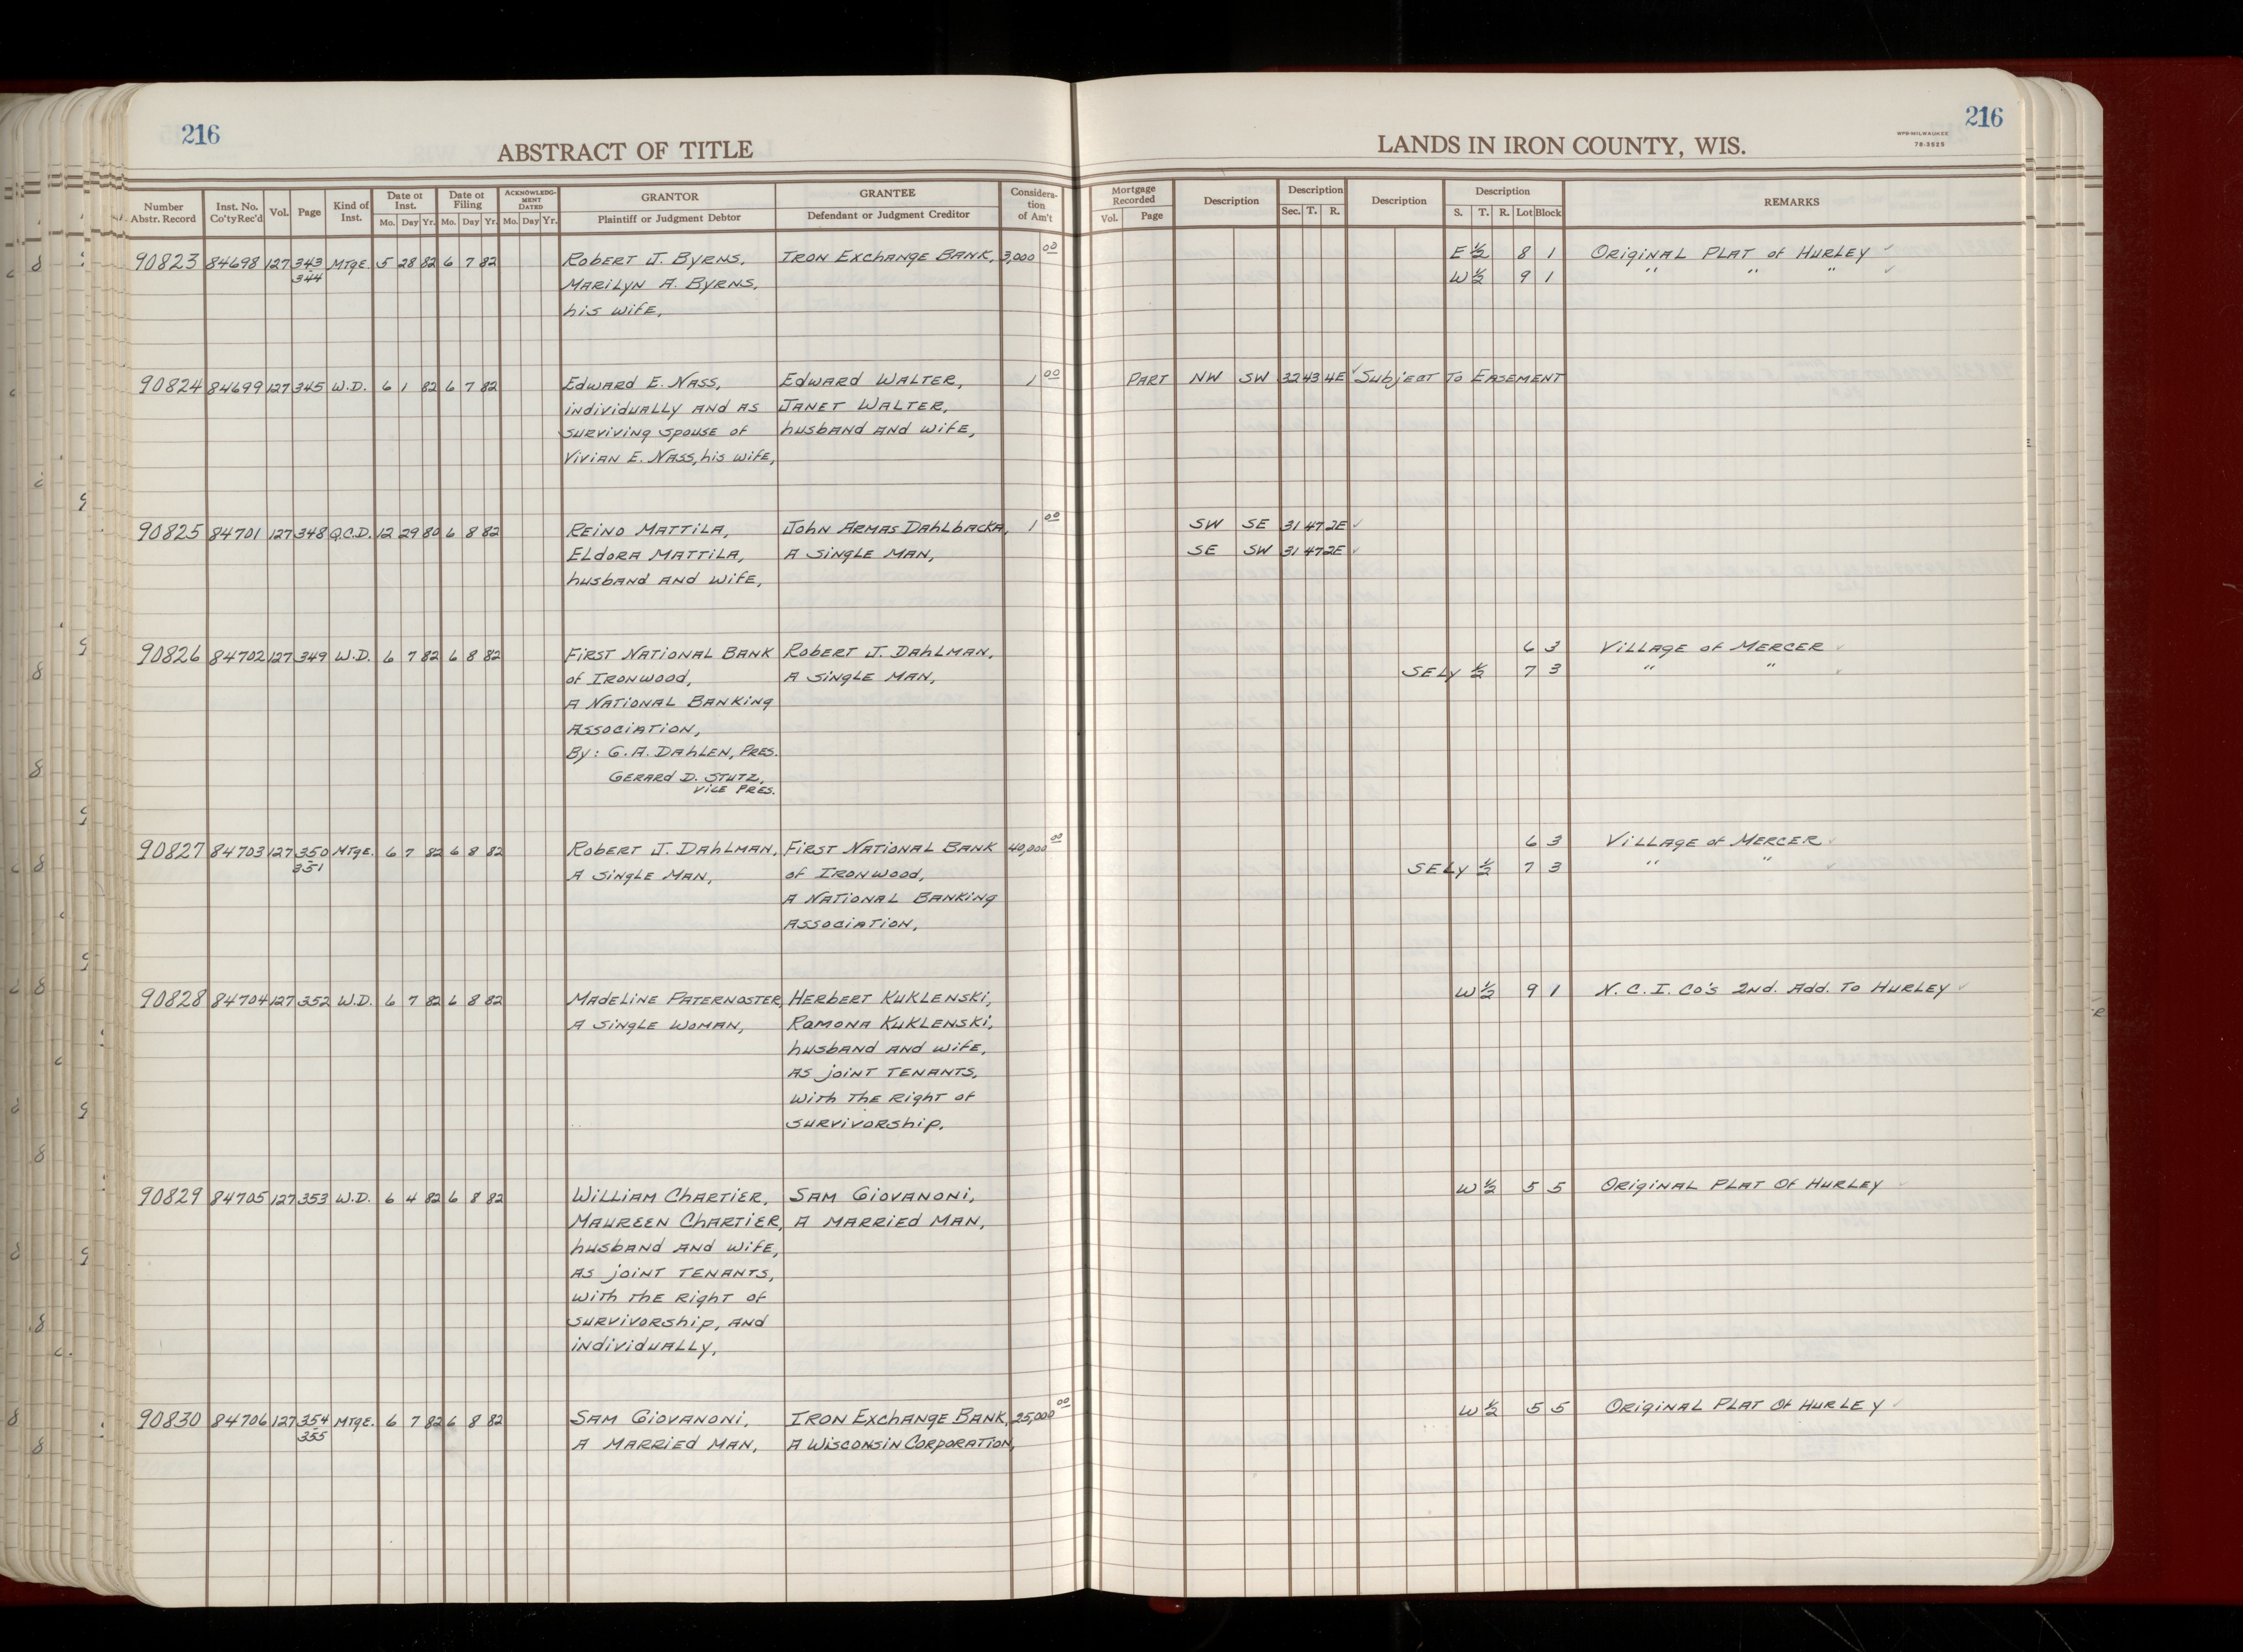 216
216
ABSTRACT OF TITLE
LANDS IN IRON COUNTY, WIS.
WPS-MILWAUKEE
78-3525
Number Abstr. Record | Inst. No. Co'ty Rec'd | Vol. | Page | Kind of Inst. | Date of Inst. Mo. Day Yr. | Date of Filing Mo. Day Yr. | ACKNOWLEDGMENT DATED Mo. Day Yr. | GRANTOR Plaintiff or Judgment Debtor | GRANTEE Defendant or Judgment Creditor | Consideration of Am't | Mortgage Recorded Vol. Page | Description | Description Sec. T. R. | Description | Description S. T. R. Lot Block | REMARKS
90823 84698 127 343 Mtge. 5 28 82 6 7 82 Robert J. Byrns, Iron Exchange Bank, 3,000 00 E 1/2 8 1 Original Plat of Hurley
344 Marilyn A. Byrns, W 1/2 9 1 " " "
his wife,
90824 84699 127 345 W.D. 6 1 82 6 7 82 Edward E. Nass, Edward Walter, 1 00 Part NW SW 32 43 4E Subject To Easement
individually and as Janet Walter,
surviving spouse of husband and wife,
Vivian E. Nass, his wife,
90825 84701 127 348 Q.C.D. 12 29 80 6 8 82 Reino Mattila, John Armas Dahlbacka, 1 00 SW SE 31 47 2E
Eldora Mattila, A single man, SE SW 31 47 2E
husband and wife,
90826 84702 127 349 W.D. 6 7 82 6 8 82 First National Bank Robert J. Dahlman, 6 3 Village of Mercer
of Ironwood, A single man, SELY 1/2 7 3 " "
A National Banking
Association,
By: G.A. Dahlen, Pres.
Gerard D. Stutz,
Vice Pres.
90827 84703 127 350 Mtge. 6 7 82 6 8 82 Robert J. Dahlman, First National Bank 40,000 00 6 3 Village of Mercer
351 A single man, of Ironwood, SELY 1/2 7 3 " "
A National Banking
Association,
90828 84704 127 352 W.D. 6 7 82 6 8 82 Madeline Paternoster, Herbert Kuklenski, W 1/2 9 1 N.C.I. Co's 2nd. Add. To Hurley
A single woman, Ramona Kuklenski,
husband and wife,
as joint tenants,
with the right of
survivorship.
90829 84705 127 353 W.D. 6 4 82 6 8 82 William Chartier, Sam Giovanoni, W 1/2 5 5 Original Plat Of Hurley
Maureen Chartier, A married man,
husband and wife,
as joint tenants,
with the right of
survivorship, and
individually,
90830 84706 127 354 Mtge. 6 7 82 6 8 82 Sam Giovanoni, Iron Exchange Bank, 25,000 00 W 1/2 5 5 Original Plat Of Hurley
355 A married man, A Wisconsin Corporation,